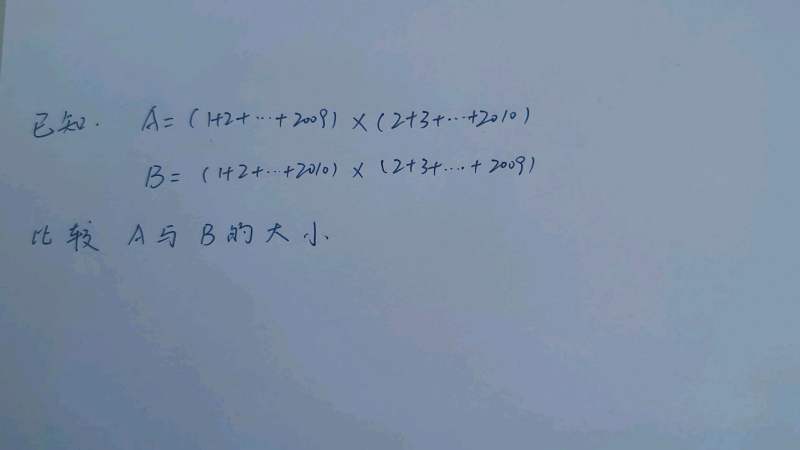 已知. A=(1+2+…+2009)×(2+3+…+2010)
B=(1+2+…+2010)×(2+3+…+2009)
比较 A与B的大小.